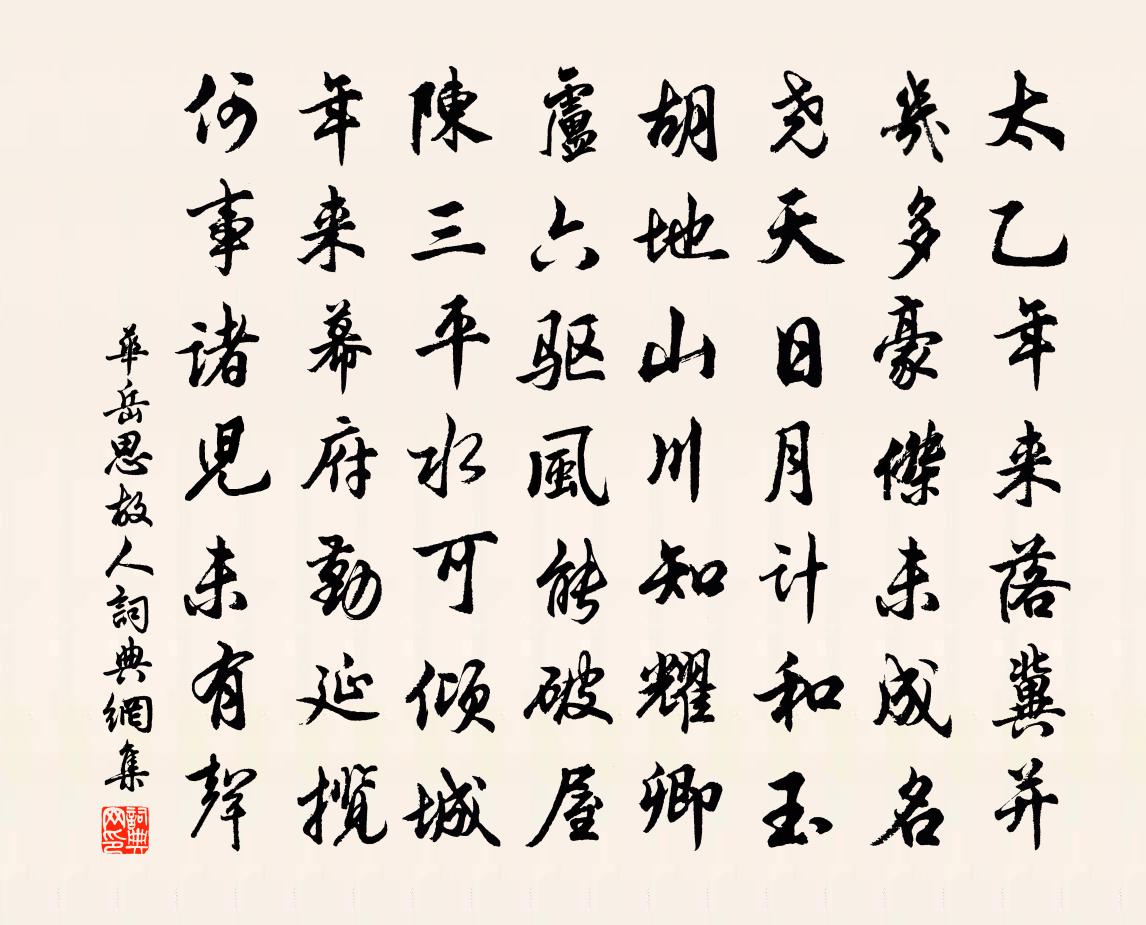 太乙年来落冀并
幾多豪傑未成名
尧天日月計和玉
胡地山川知耀卿
盧六驱風能破屋
陳三平水可倾城
年来幕府勤延揽
何事諸児未有聲
華岳思故人詞典網集
詞典网印